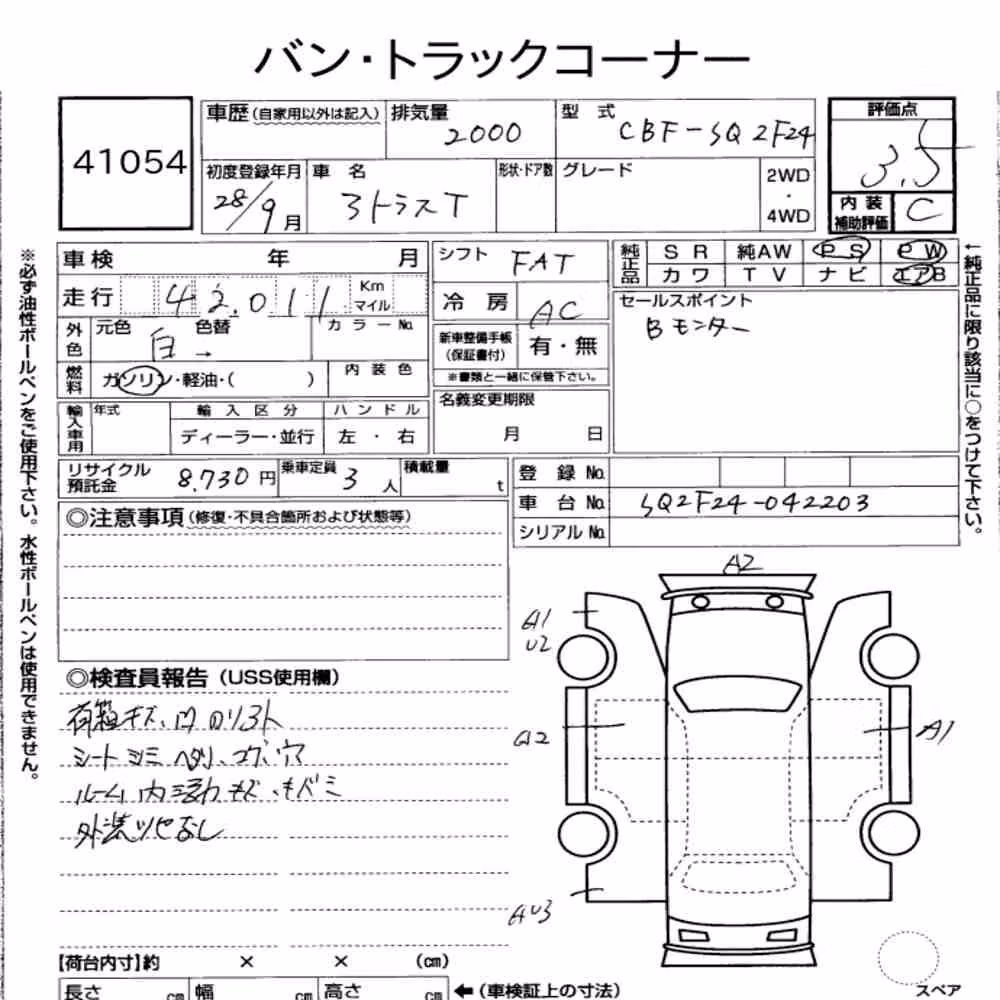 バン・トラックコーナー
41054
車歴(自家用以外は記入) 排気量 2000 型 式 CBF-SQ2F24 評価点 3.5
初度登録年月 28/9月 車 名 3トラスT 形状・ドア数 グレード 2WD・4WD 内装補助評価 C
車検 年 月
走行 42.011 Km マイル
外色 元色 白 色替 → カラーNo.
燃料 ガソリン・軽油・( ) 内装色
輸入車用 年式 輸入区分 ハンドル
ディーラー・並行 左・右
シフト FAT
冷房 AC
新車整備手帳(保証書付) 有・無
※書類と一緒に保管下さい。
名義変更期限
月 日
純正品 SR 純AW PS PW
カワ TV ナビ エアB
セールスポイント
Bモンター
リサイクル預託金 8.730円 乗車定員 3人 積載量 t
登録No.
車台No. SQ2F24-042203
シリアルNo.
◎注意事項(修復・不具合箇所および状態等)
◎検査員報告(USS使用欄)
シート シミ ヘタリ、コゲ、穴
ルーム内
外装ツヤなし
A2
A1
U2
A2
A1
AU3
【荷台内寸】約 × × (cm)
長さ cm 幅 cm 高さ cm ←(車検証上の寸法)
スペア
※必ず油性ボールペンをご使用下さい。水性ボールペンは使用できません。
←純正品に限り該当に○をつけて下さい。